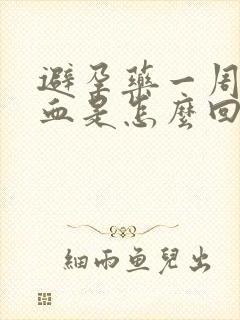 避孕藥一周
血是怎麼回
細雨魚兒出